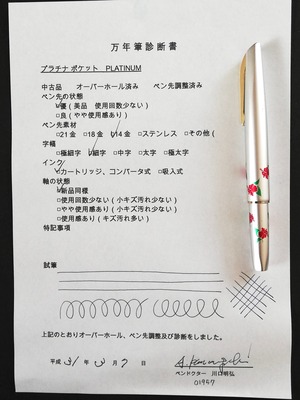 万年筆診断書
プラチナ ポケット PLATINUM
中古品 オーバーホール済み ペン先調整済み
ペン先の状態
☑優（美品 使用回数少ない）
□良（やや使用感あり）
ペン先素材
□21金 □18金 ☑14金 □ステンレス □その他（
字幅
□極細字 ☑細字 □中字 □太字 □極太字
インク
☑カートリッジ、コンバータ式 □吸入式
軸の状態
☑新品同様
□使用回数少ない（小キズ汚れ少ない）
□やや使用感あり（小キズ汚れ少ない）
□使用感あり（キズ汚れ多い）
特記事項
試筆
上記のとおりオーバーホール、ペン先調整及び診断をしました。
平成 31 年 3 月 7 日
ペンドクター 川口明弘
01947